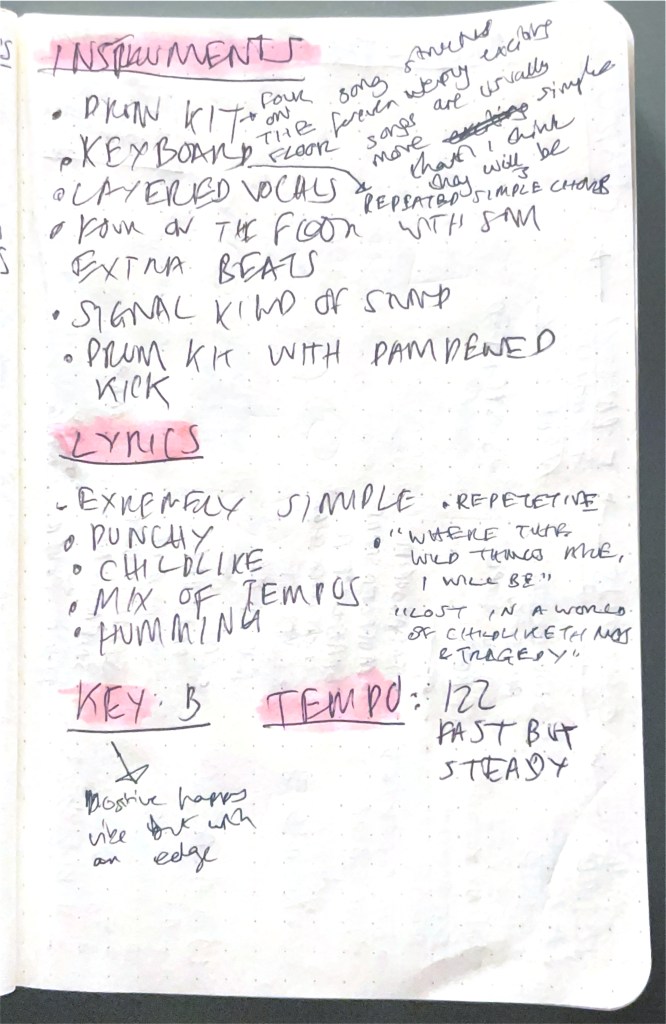 INSTRUMENTS
• DRUM KIT → FOUR ON THE FLOOR
song structures
forever
exciting
songs are usually
more simple
than I think
they will be
• KEYBOARD → REPEATED SIMPLE CHORDS
• LAYERED VOCALS
• FOUR ON THE FLOOR WITH SOM
EXTRA BEATS
• SIGNAL KIND OF SOUND
• DRUM KIT WITH DAMPENED
KICK
LYRICS
- EXREMELY SIMPLE
• PUNCHY
• CHILDLIKE
• MIX OF TEMPOS
• HUMMING
• REPETETIVE
• "WHERE THE
WILD THINGS ARE,
I WILL BE"
"LOST IN A WORLD
OF CHILDLIKE THINGS
& TRAGEDY"
KEY: B
positive happy
vibe but with
an edge
TEMPO: 122
FAST BUT
STEADY